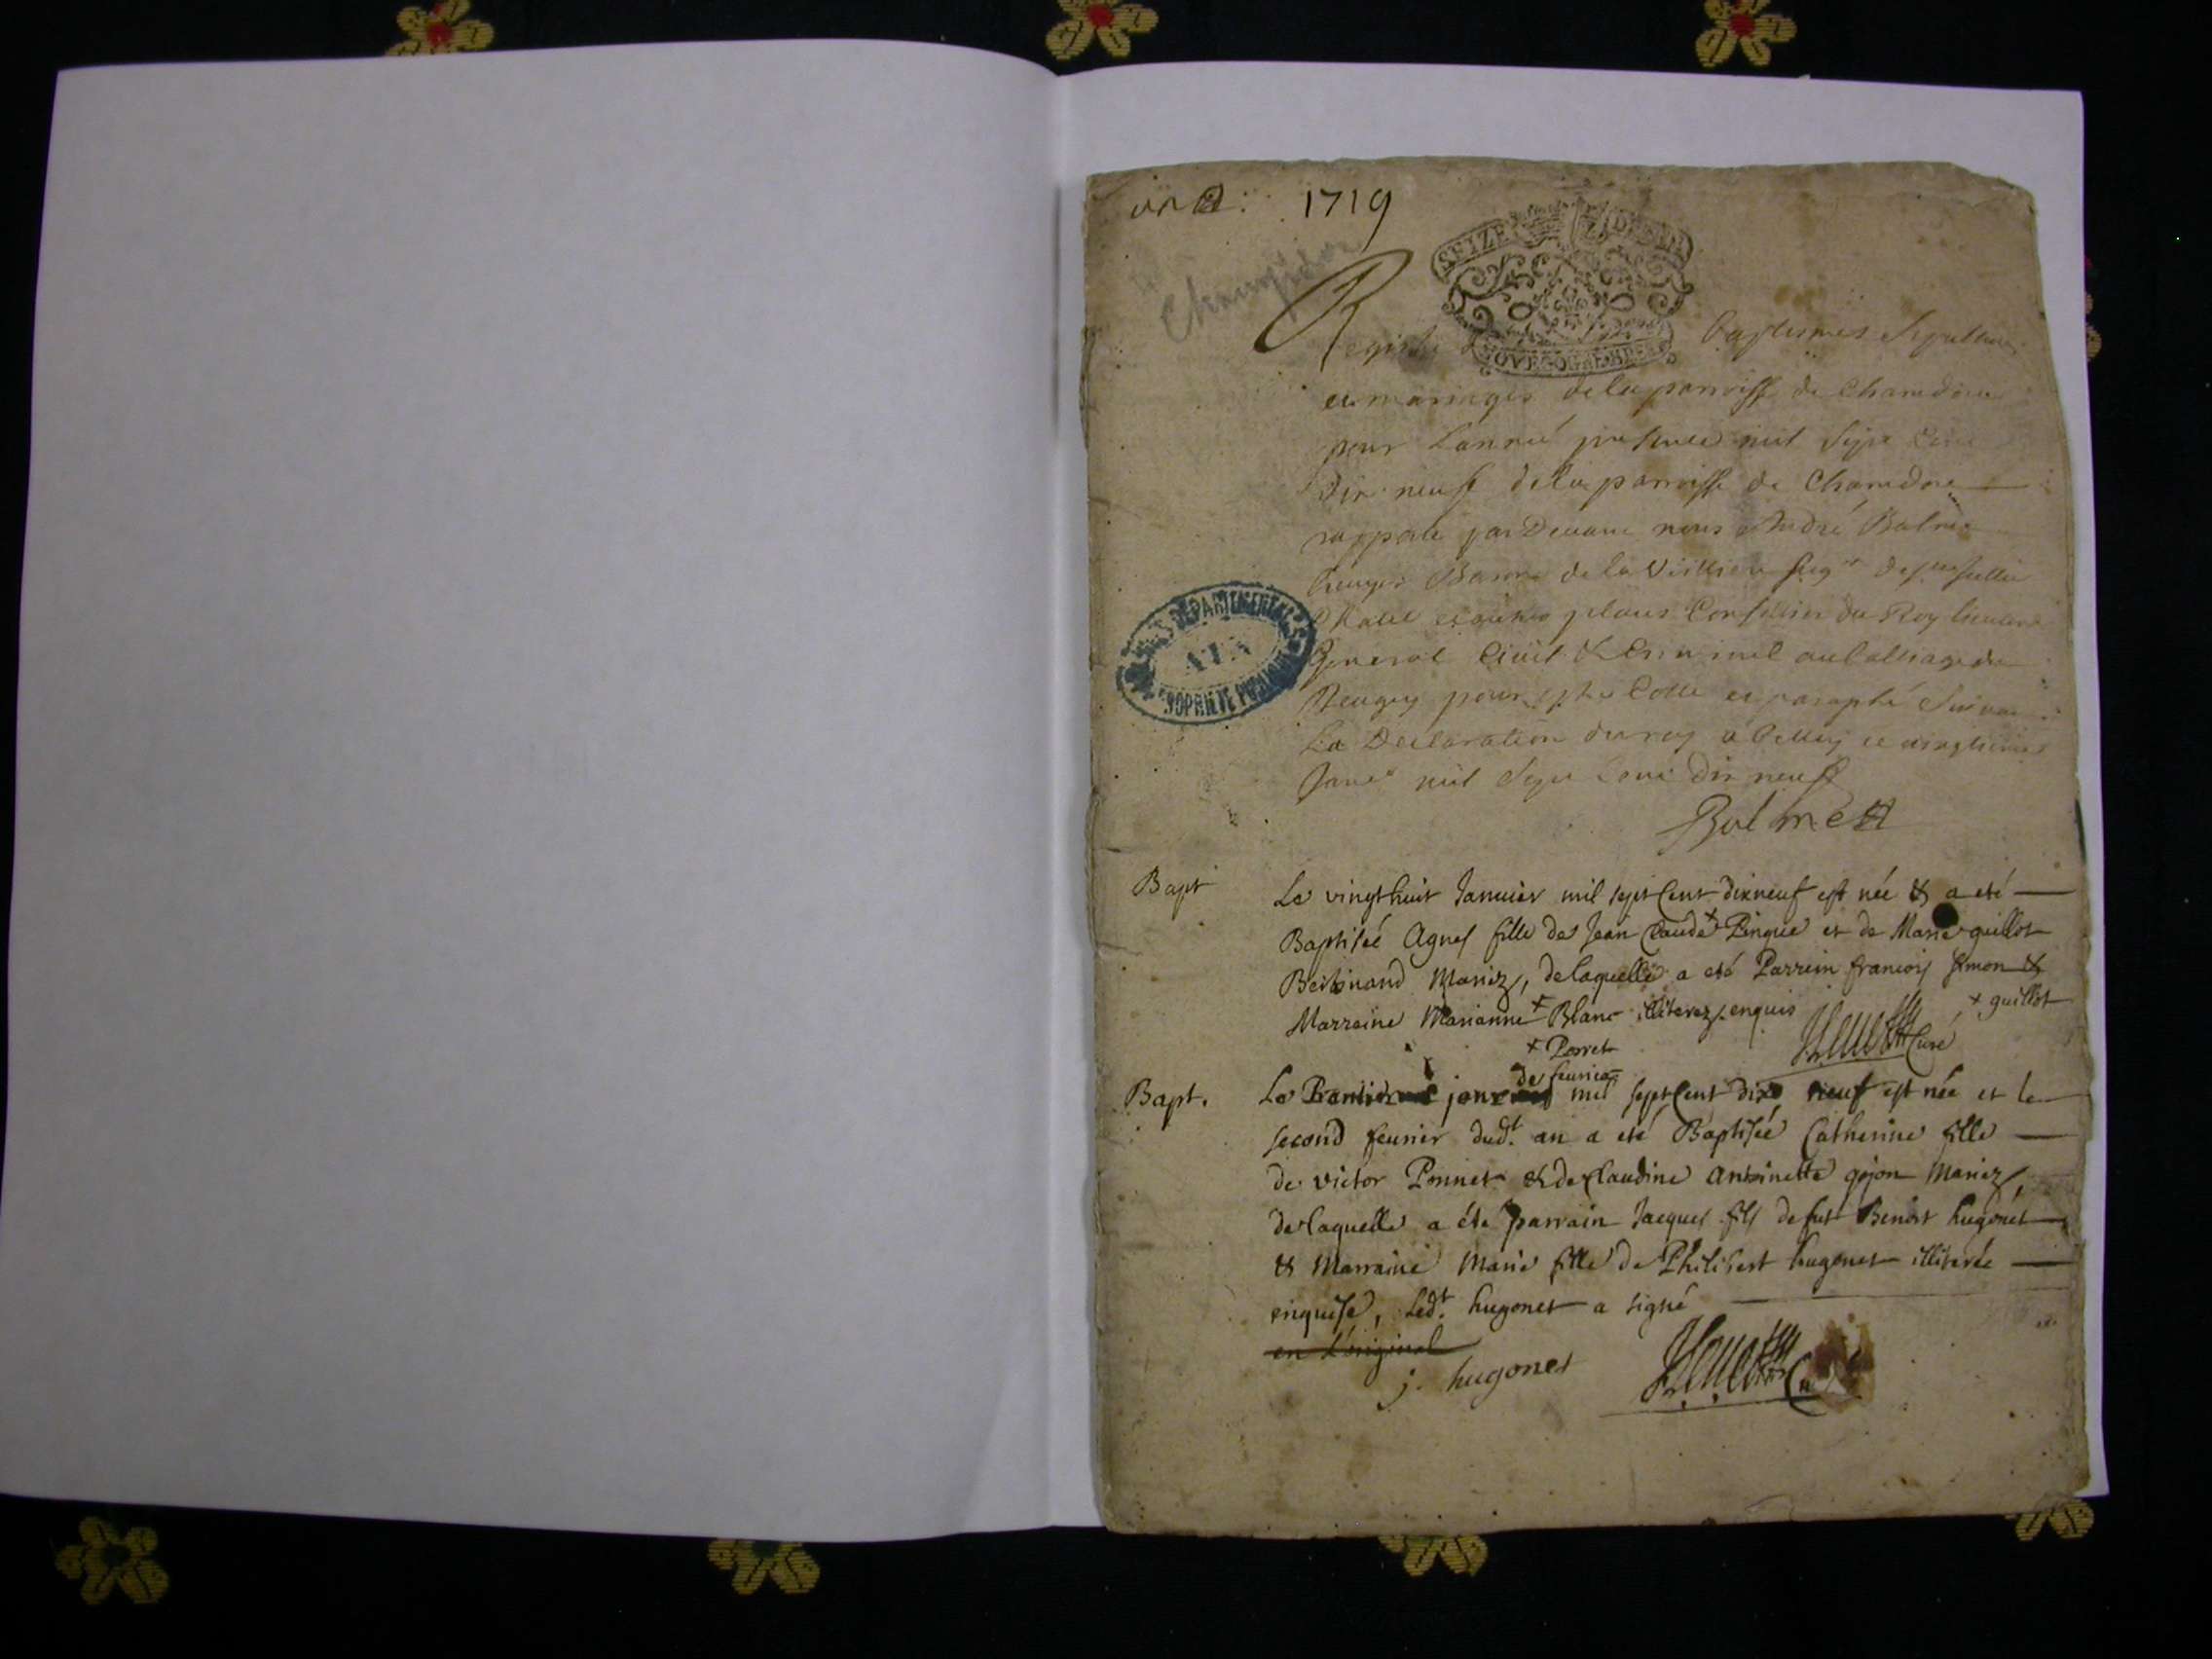 1719
SEIZE DEDEN
BOVRGOGNE BRESSE
Registre baptesmes Sepultures
et mariages de la parroisse de Charndore
pour Lanneé presente mil Sept Cent
Dix neuf de la parroisse de Charndore
rapporté par Devant nous André Balmet
Baron de la Velliere Seigr
Conseillier du Roy lieutenant
General Civil & Criminel au balliage de
Beugey pour estre Cotté et paraphé Suivant
La Declaration du roy a Belley ce vingtieme
Janer mil Sept Cent Dix neuf
Balmett
ARCHIVES DEPARTEMENTALES
AIN
PROPRIETE PUBLIQUE
Bapt
Le vingt huit Januier mil sept Cent dixneuf est née & a eté
Baptiseé Agnes fille de Jean Claude + Pingue et de Marie guillot
Mariez, de laquelle a eté Parrein francois Simon &
Marreine Marianne + Blanc illiterez, enquis + guillot
Curé
+ Porret
de feurier
Bapt. Le Premier jour mil sept Cent dix neuf est née et le
second feurier dudt. an a eté Baptiseé Catherine fille
de victor Ponnet & de Claudine Antoinette gojon Mariez,
de laquelle a éte parrain Jacques fils de fut Benoit hugonet
& Marraine Marie fille de Philibert hugonet illiterée
enquise, Ledt. hugonet a signé
en L'original
j. hugonet